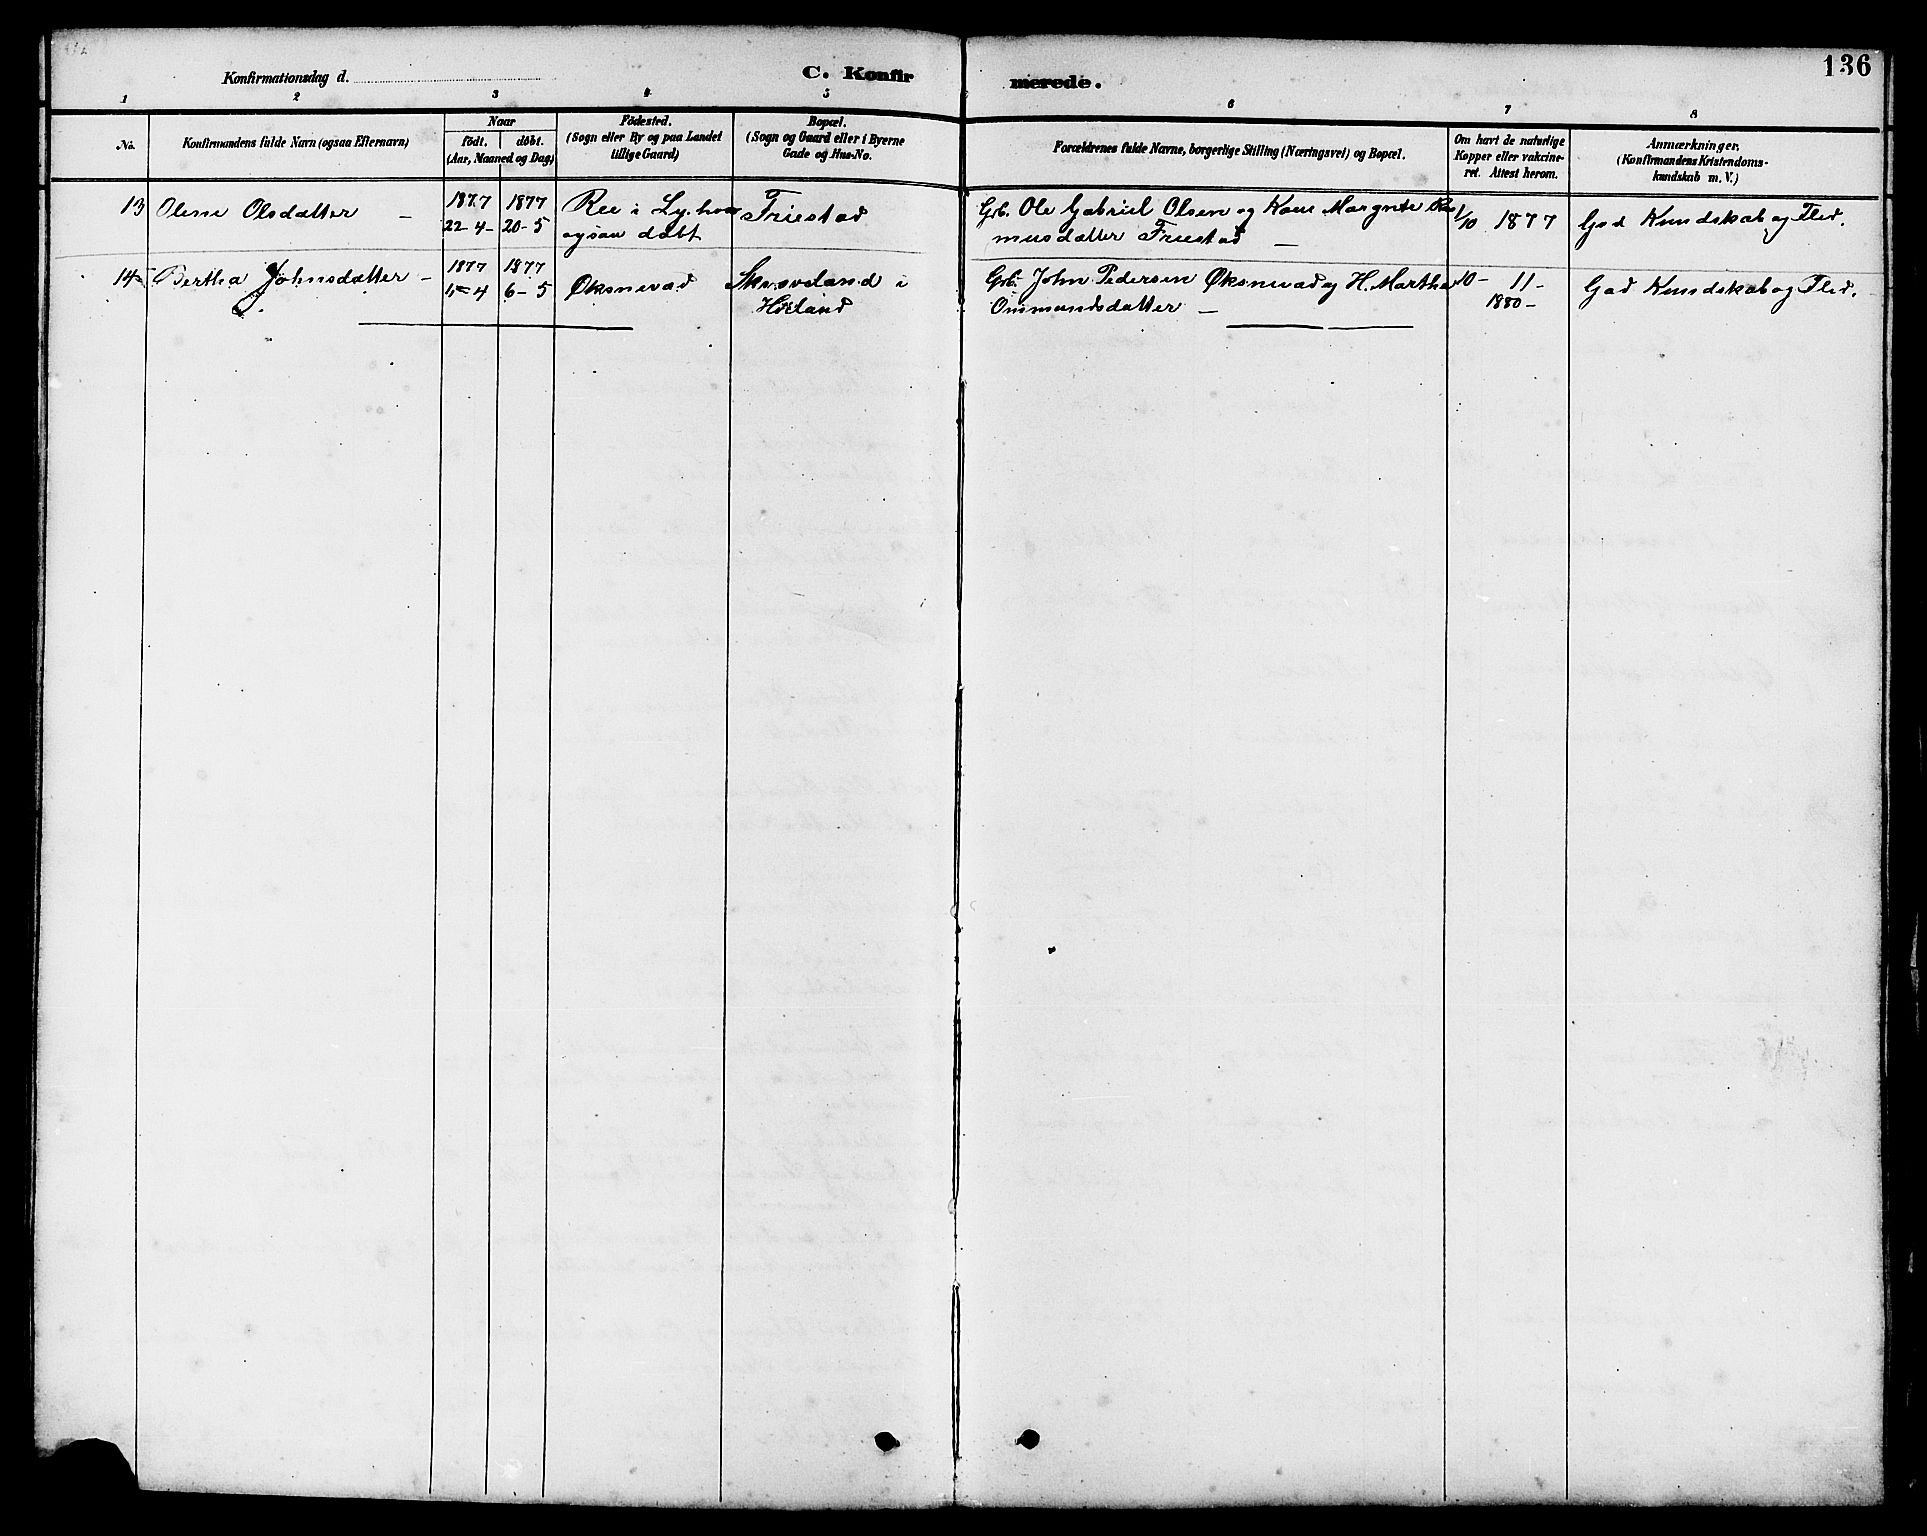 136
Konfirmationsdag d.
C. Konfirmerede.
1 2 3 4 5 6 7 8
No.
Konfirmandens fulde Navn (ogsaa Efternavn)
Naar
födt. döbt.
(Aar, Maaned og Dag)
Födested.
(Sogn eller By og paa Landet
tillige Gaard)
Bopæl.
(Sogn og Gaard eller i Byerne
Gade og Hus-No.
Forældrenes fulde Navne, borgerlige Stilling (Næringsvei) og Bopæl.
Om havt de naturlige
Kopper eller vakcine-
ret. Attest herom.
Anmærkninger.
(Konfirmandens Kristendoms-
kundskab m. V.)
13 Olene Olsdatter – 1877 1877 Ree i Ly. hvor Friestad Grb. Ole Gabriel Olsen og Kone Margrete Ras 1/10 1877 God Kundskab og Flid.
22-4- 20-5 ogsaa døbt musdatter Friestad –
14 Bertha Johnsdatter – 1877 1877 Øksnevad Skræveland i Grb. John Pedersen Øksnevad og H. Martha 10- 11- God Kundskab og Flid.
4 6-5 Høiland Ommundsdatter – 1880-